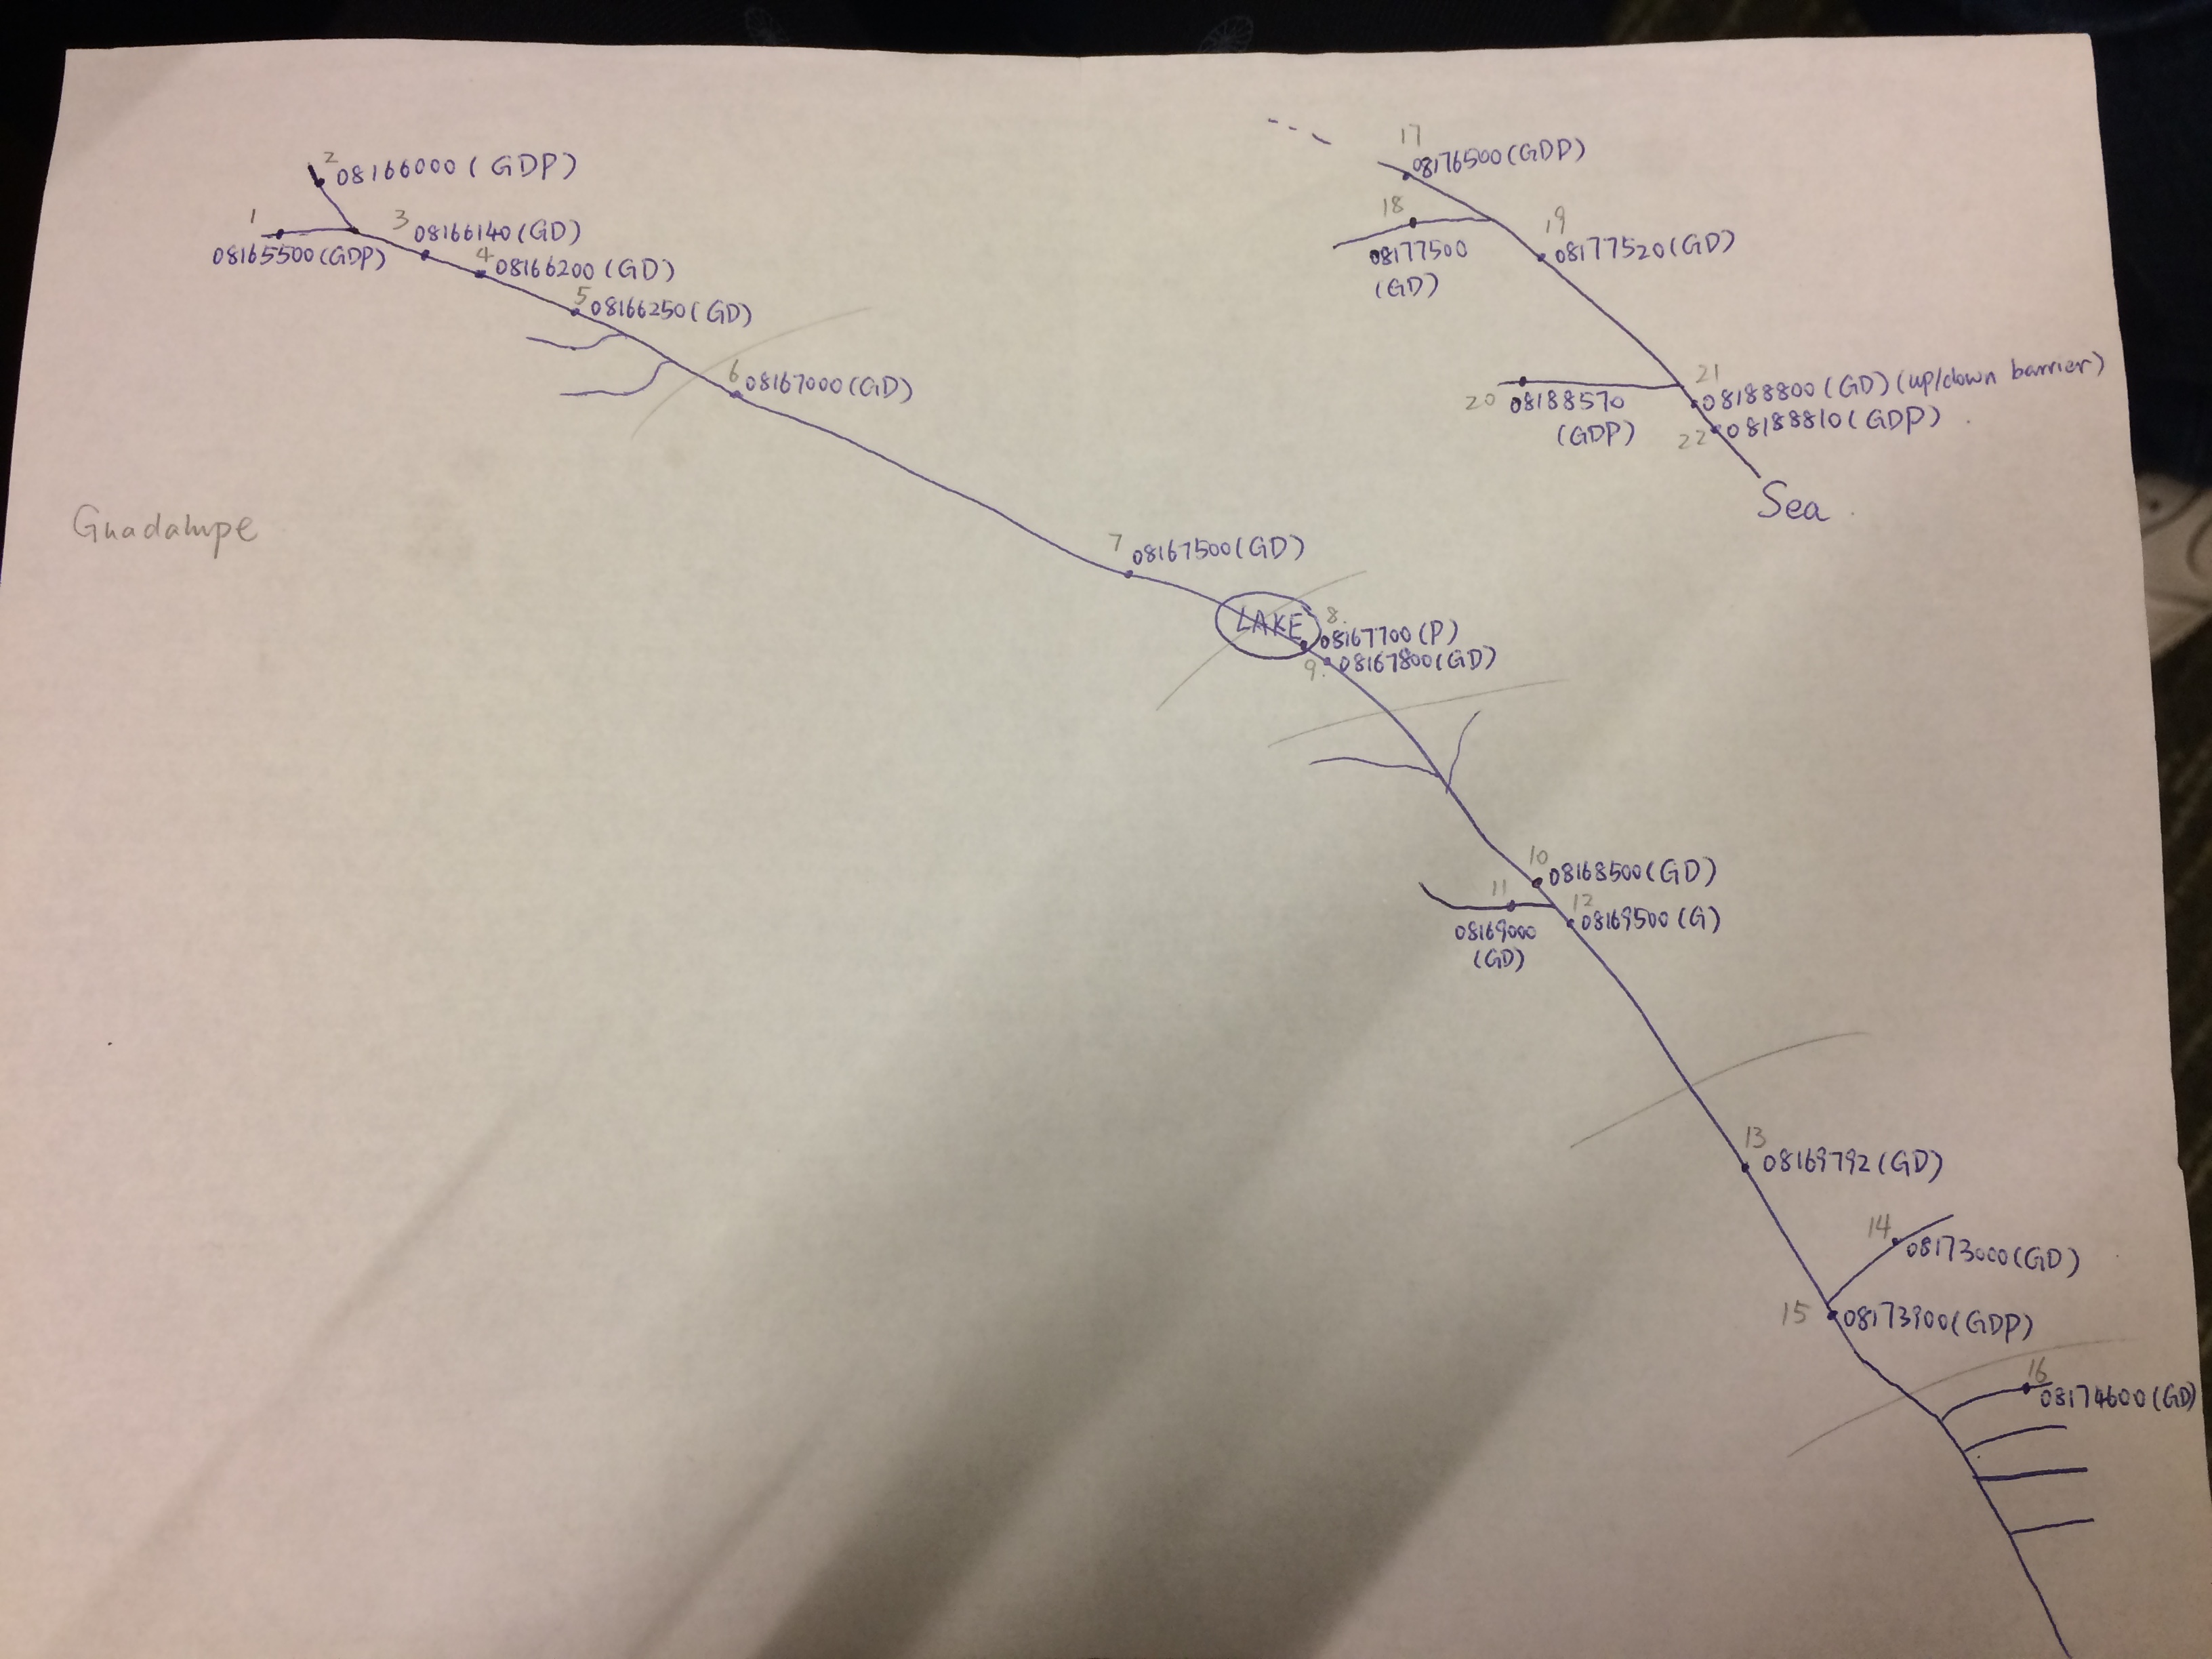 2
08166000 (GDP)
1
08165500 (GDP)
3
08166140 (GD)
4
08166200 (GD)
5
08166250 (GD)
6
08167000 (GD)
Guadalupe
7
08167500 (GD)
LAKE
8.
08167700 (P)
9.
08167800 (GD)
10
08168500 (GD)
11
08169000
(GD)
12
08169500 (G)
13
08169792 (GD)
14
08173000 (GD)
15
08173900 (GDP)
16
08174600 (GD)
17
08176500 (GDP)
18
08177500
(GD)
19
08177520 (GD)
20
08188570
(GDP)
21
08188800 (GD) (up/down barrier)
22
08188810 (GDP)
Sea